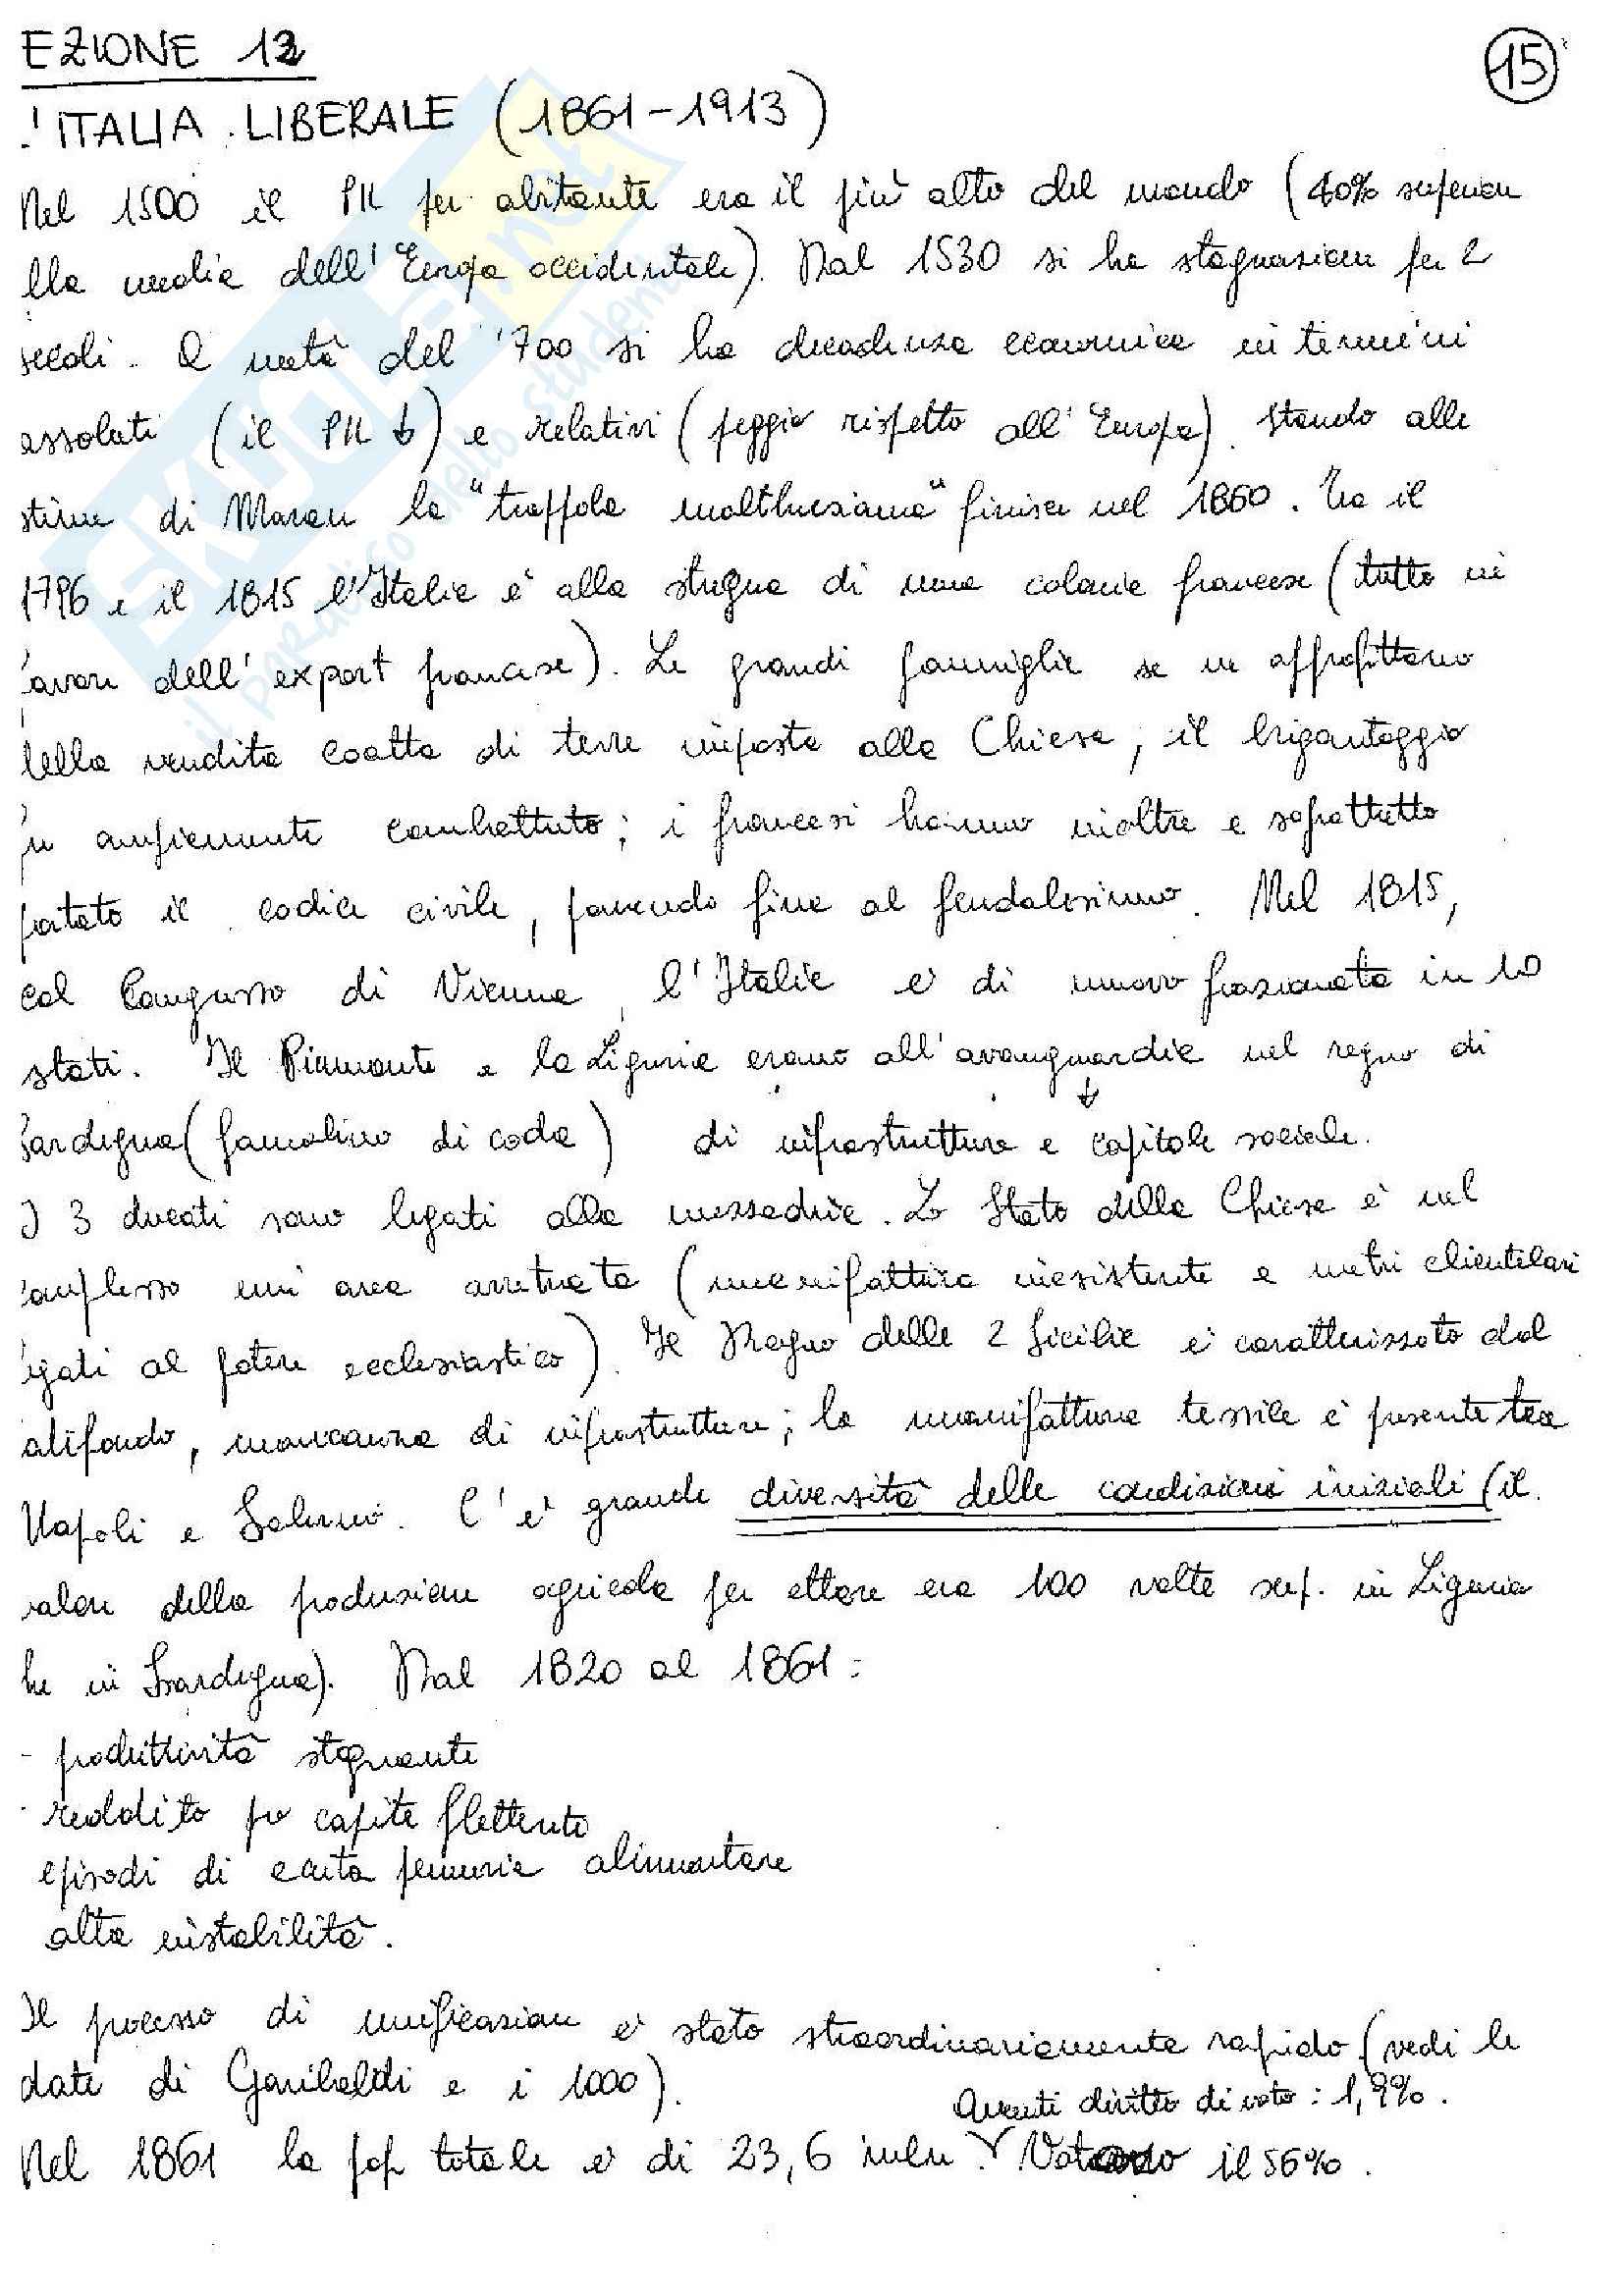 EZIONE 12
15
'ITALIA LIBERALE (1861-1913)
Nel 1500 il PIL per abitante era il più alto del mondo (40% superiore
lla media dell'Europa occidentale). Dal 1530 si ha stagnazione per 2
secoli. A metà del '700 si ha decadenza economica in termini
assoluti (il PIL ↓) e relativi (peggio rispetto all'Europa). Stando alle
stime di la "trappola malthusiana" finisce nel 1860. Tra il
1796 e il 1815 l'Italia è alla stregua di una colonia francese (tutto in
avore dell'export francese). Le grandi famiglie se ne approfittano
della vendita coatta di terre imposta alla Chiesa; il brigantaggio
fu ampiamente combattuto; i francesi hanno inoltre e soprattutto
portato il codice civile, ponendo fine al feudalesimo. Nel 1815,
col Congresso di Vienna, l'Italia è di nuovo frazionata in 10
stati. Il Piemonte e la Liguria erano all'avanguardia nel regno di
↓
Sardegna (fanalino di coda) di infrastrutture e capitale sociale.
I 3 ducati sono legati alla mezzadria. Lo Stato della Chiesa è nel
complesso un'area arretrata (manifattura inesistente e metri clientelari
legati al potere ecclesiastico). Il Regno delle 2 Sicilie è caratterizzato dal
latifondo, mancanza di infrastrutture; la manifattura tessile è presente tra
Napoli e Salerno. C'è grande diversità delle condizioni iniziali (il
valore della produzione agricola per ettaro era 100 volte sup. in Liguria
he in Sardegna). Dal 1820 al 1861:
- produttività stagnante
- reddito pro capite flettente
episodi di acuta penuria alimentare
alta instabilità.
Il processo di unificazione è stato straordinariamente rapido (vedi le
date di Garibaldi e i 1000).
Aventi diritto di voto: 1,9%.
Nel 1861 la pop totale è di 23,6 mln. Votano il 56%.
SKUOLA.net
il paradiso dello studente